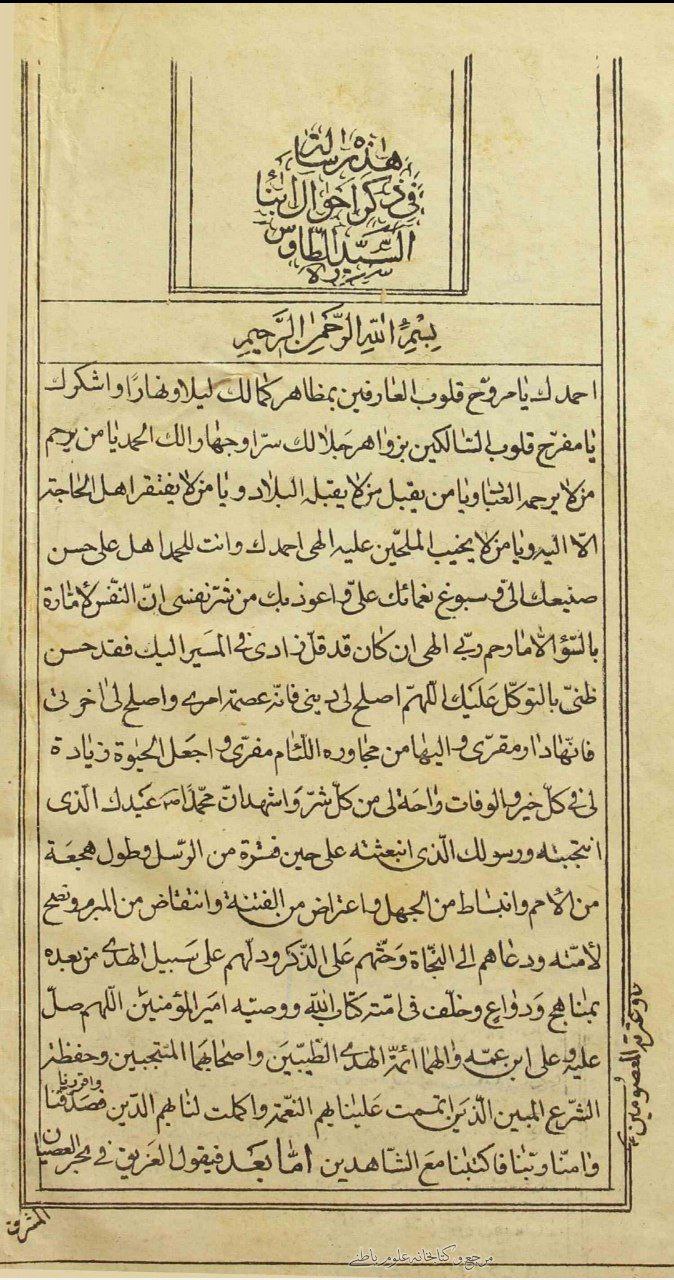 هذه رسالة
في ذكر احوال ابناء
السيد الطاوس
بِسْمِ اللّٰهِ الرَّحْمٰنِ الرَّحيمِ
احمدك يا مروّح قلوب العارفين بمظاهر كمالك ليلا ونهارًا واشكرك
يا مفرّح قلوب السّالكين بزواهر جلالك سرّا وجهارا لك الحمد يا من يرحم
من لا يرحمه العباد ويا من يقبل من لا يقبله البلاد ويا من لا يفتقر اهل الحاجة
الّا اليه ويا من لا يخيب الملحّين عليه الهى احمدك وانت للحمد اهل على حسن
صنيعك الىّ وسبوغ نعمائك علىّ واعوذ بك من شرّ نفسى انّ النّفس لأمّارة
بالسّوء الّا ما رحم ربّى الهى ان كان قد قلّ زادى فى المسير اليك فقد حسن
ظنّى بالتوكّل عَلَيْك اللّهمّ اصلح لى دينى فانّه عصمة امرى واصلح لى اخرتى
فانّها دار مقرّى واليها من مجاوره اللّئام مفرّى واجعل الحيوة زيادة
لى فى كلّ خير والوفات راحة لى من كلّ شرّ واشهد انّ محمّدًا ص عبدك الّذى
انتجبته ورسولك الّذى ابتعثته على حين فترة من الرّسل وطول هجعة
من الأمم وانبساط من الجهل واعتراض من الفتنة وانتقاض من المبرم ونصح
لأمّته ودعاهم الى النّجاة وَحثّهم عَلى الذّكر ودلّهم على سَبيل الهدى من بعده
بمناهج وَدواعٍ وخلّف فى امّته كتاب اللّٰه ووصيّه امير المؤمنين اللّهم صلّ
عليه وعلى ابن عمّه والهما ائمّة الهدى الطّيّبين واصحابهما المنتجبين وحفظة
الشّرع المبين الّذين اتممت عَليْنا بهم النّعمة واكملت لنا بهم الدّين فصَدّقنا واقررنا
وامنّا ربّنا فاكتبنا مَع الشّاهدين امّا بَعد فيقول الغريق فى بحر العصيان
وعترته المعصومين
المشرق
مرجع و کتابخانه علوم باطنی